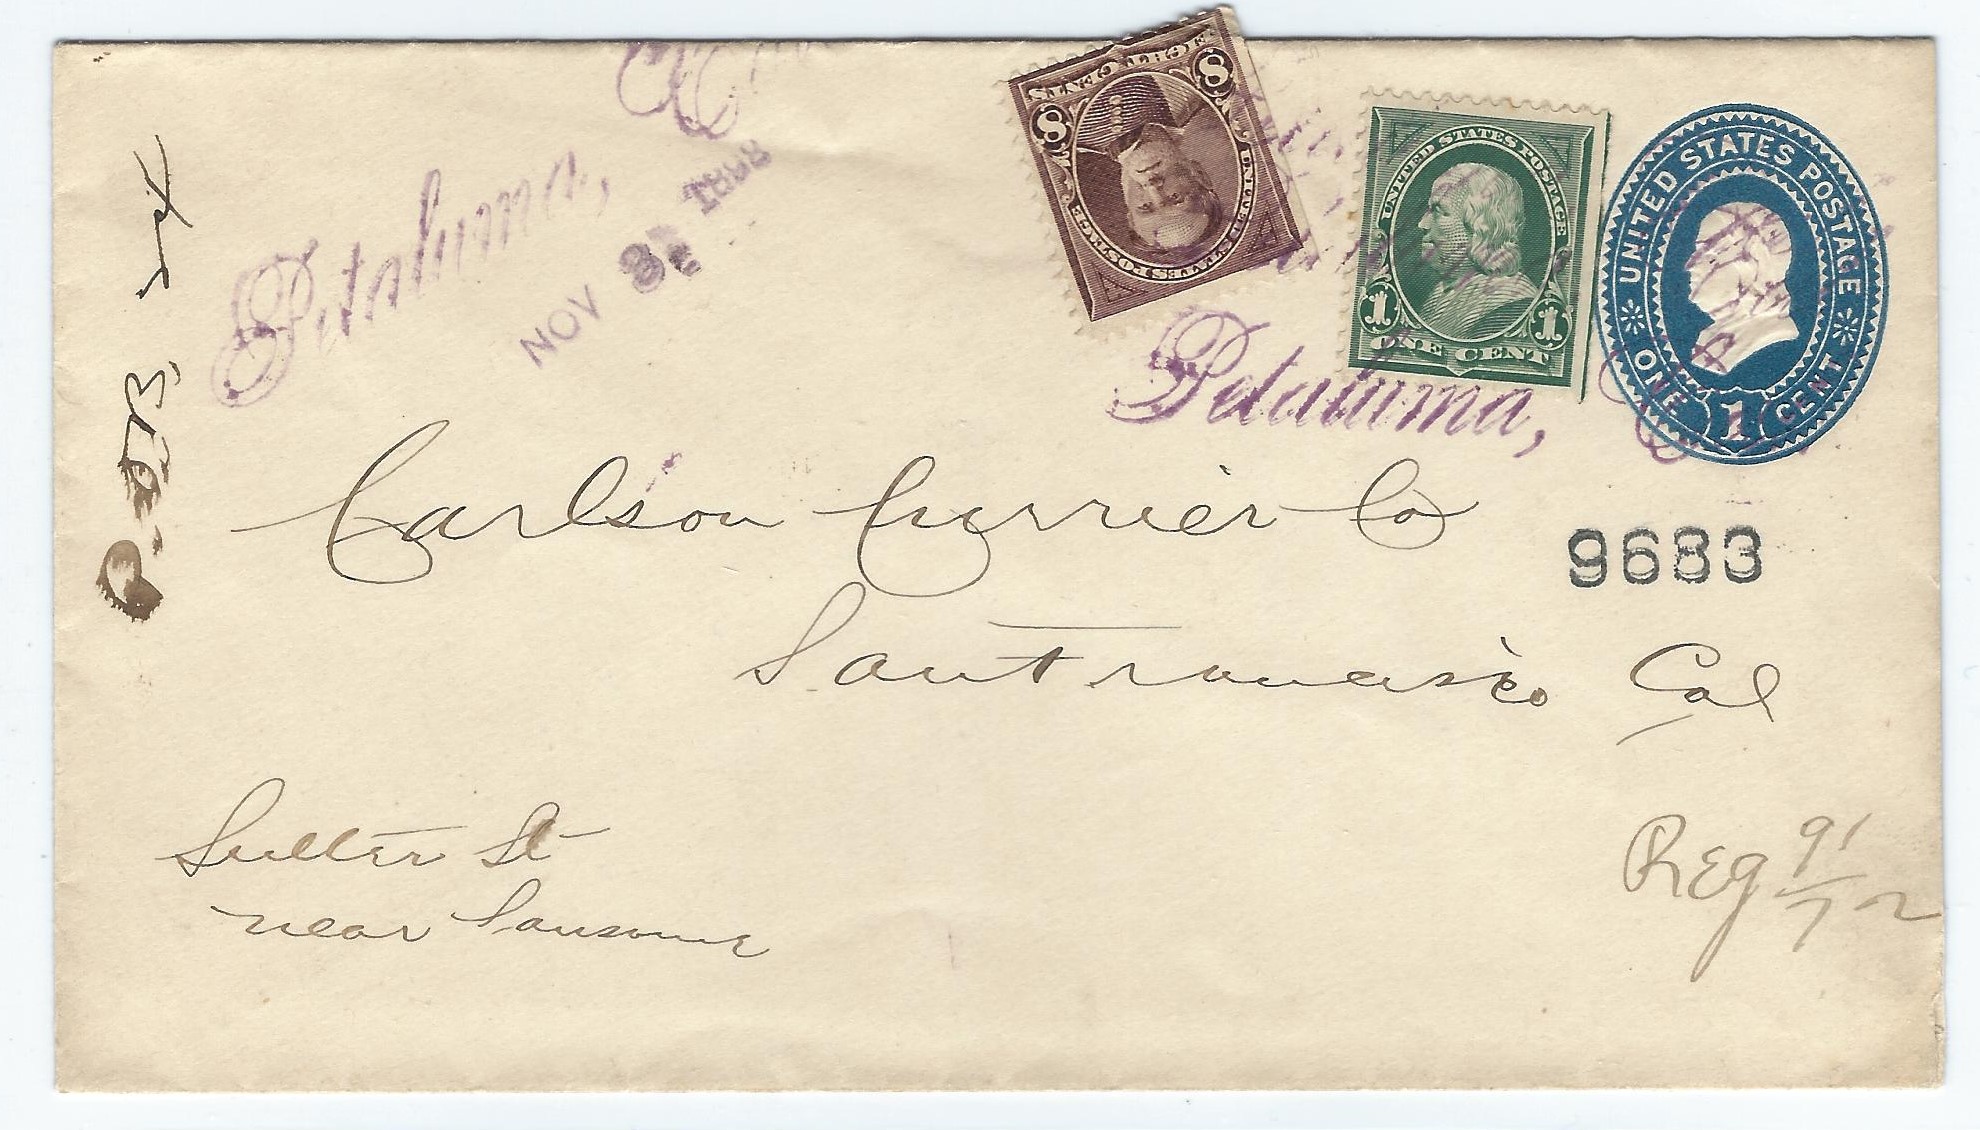 Petaluma,
NOV 8 1898
EIGHT CENTS
8 8
UNITED STATES POSTAGE
UNITED STATES POSTAGE
1 1
ONE CENT
UNITED STATES POSTAGE
ONE 1 CENT
Petaluma,
Carlson Currier Co
9683
San Francisco Cal
Sutter St
near Sansome
Reg 91/72